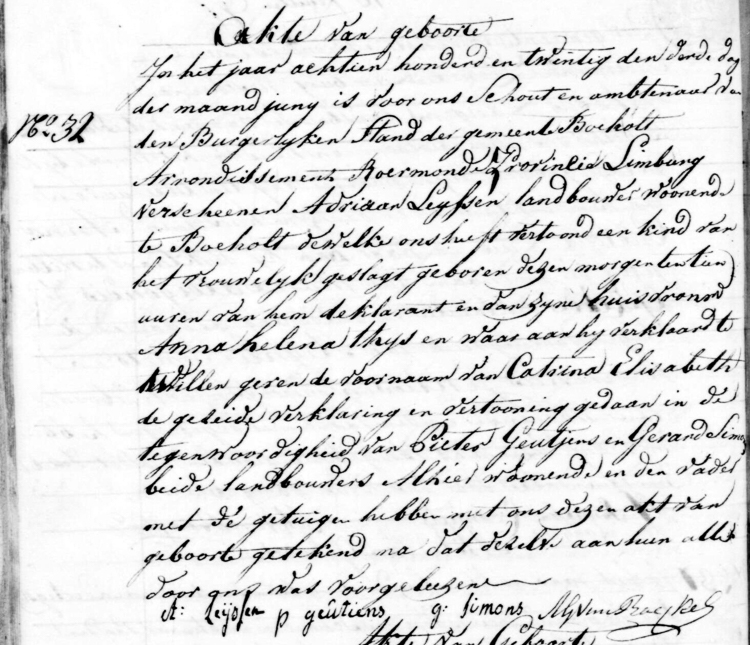 Akte van geboorte
In het jaar achtien honderd en twintig den derde dag
der maand juny is voor ons Schout en ambtenaar van
No 32
den Burgerlyken Stand der gemeente Bocholt
Arrondissement Roermonde Provintie Limburg
verscheenen Adriaan Leyssen landbouwer woonende
te Bocholt dewelke ons heeft vertoond een kind van
het vrouwelyk geslagt geboren dezen morgen ten tien
uuren van hem deklarant en van zyne huisvrouw
Anna helena thys en waar aan hy verklaard te
willen geven de voornaam van Catrina Elisabeth
de gezeide verklaring en vertooning gedaan in de
tegenwoordigheid van Pieter Geutjens en Gerard Simons
beide landbouwers Alhier woonende en den vader
met de getuigen hebben met ons dezen akt van
geboorte getekend na dat dezelve aan hun alle
door ons was voorgeleezen
A: Leijssen p geutiens g: simons
Akte van Geboorte